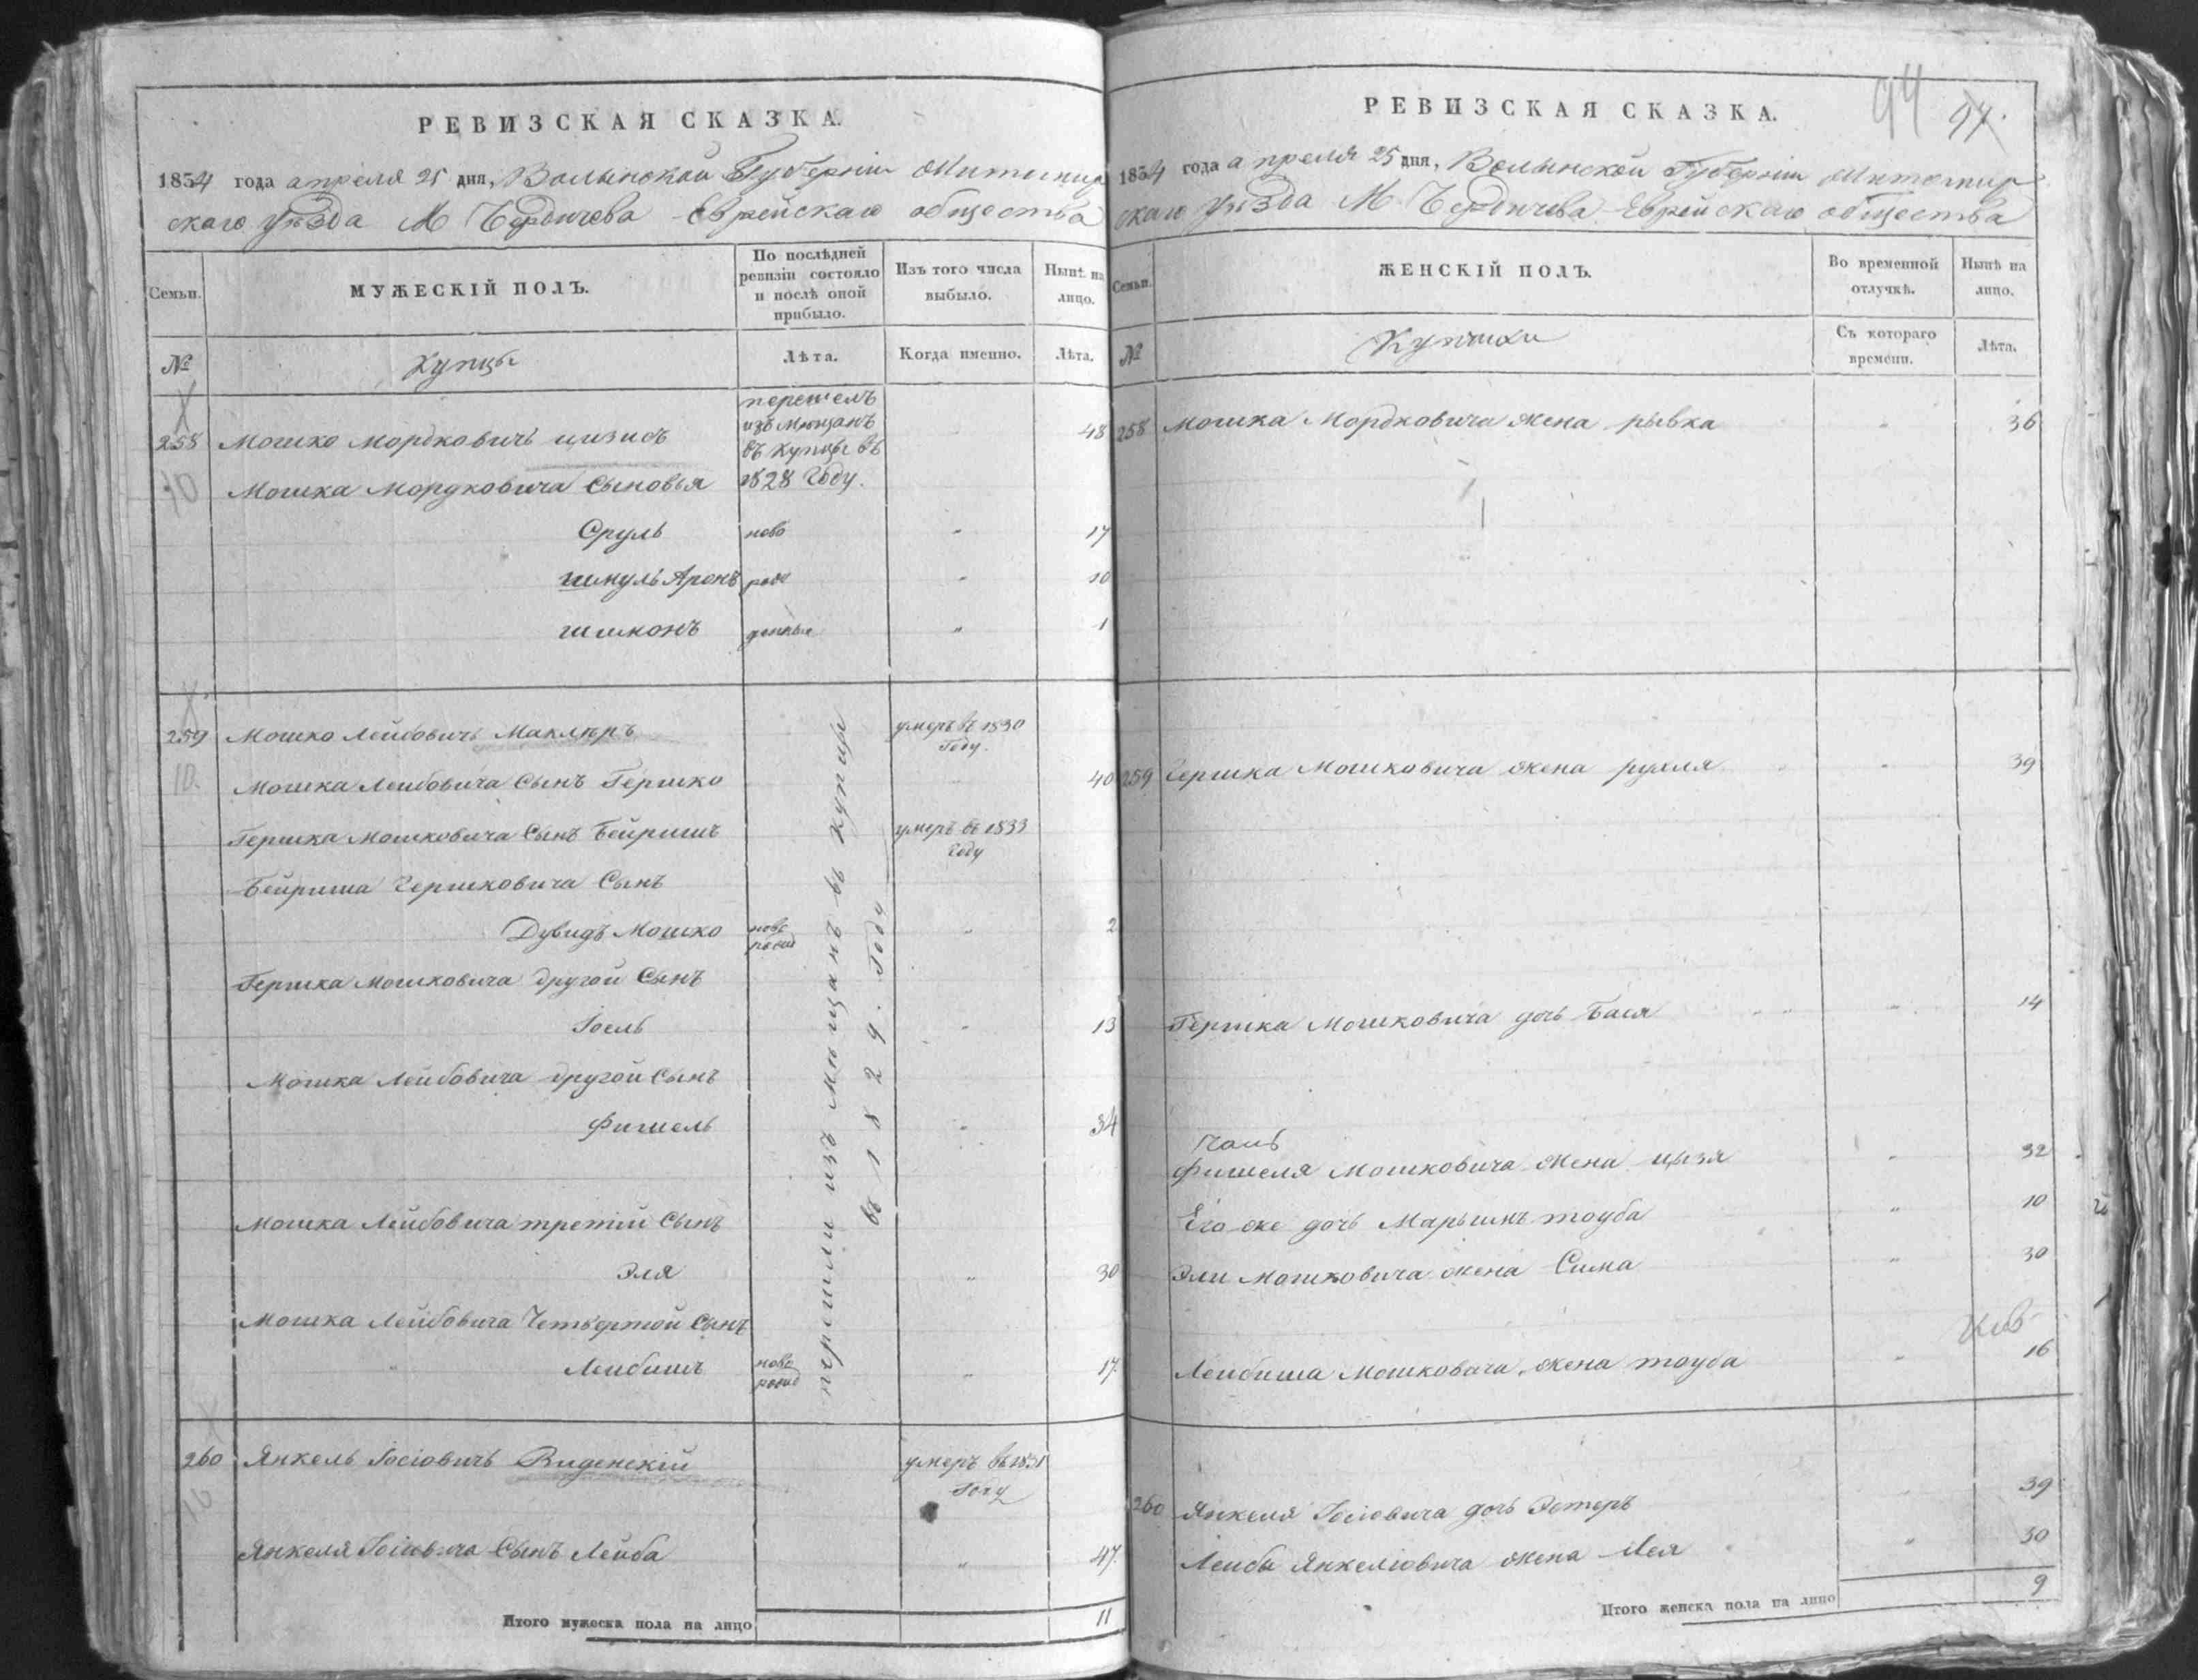 РЕВИЗСКАЯ СКАЗКА.
1834 года апреля 25 дня, Волынской Губерніи Житомир
скаго уѣзда М Бердичева Еврейскаго общества
Семьи.
МУЖЕСКІЙ ПОЛЪ.
По послѣдней ревизіи состояло и послѣ оной прибыло.
Изъ того числа выбыло.
Нынѣ на лицо.
№
Купцы
Лѣта.
Когда именно.
Лѣта.
перешелъ
изъ мѣщанъ
въ купцы въ
1828 Году.
258 Мошко Мордковичъ 48
10 Мошка Мордковича Сыновья
Сруль ново " 17
Шмуль Аронъ рож " 10
Шимконъ денные " 1
259 Мошко Лейбовичъ Маклѣръ умеръ въ 1830 Году.
10. Мошка Лейбовича Сынъ Гершко 40
Гершка Мошковича Сынъ Бейришъ умеръ въ 1833 Году
Бейриша Гершковича Сынъ
Дувидъ Мошко ново рожд " 2
Гершка Мошковича другой Сынъ
Іоель " 13
Мошка Лейбовича другой Сынъ
Фишель " 34
Мошка Лейбовича третій Сынъ
Эля " 30
Мошка Лейбовича Четвертой Сынъ
" Лейбишъ ново рожд " 17.
перешли изъ Мѣщанъ въ купцы
въ 1829. Году
260 Янкель Іосіовичъ Виденскій умеръ въ 1831 Году
10
Янкеля Іосіовича Сынъ Лейба " 47.
Итого мужеска пола на лицо 11
94 97.
РЕВИЗСКАЯ СКАЗКА.
1834 года апреля 25 дня, Волынской Губерніи Житомир
скаго уѣзда М Бердичева Еврейскаго общества
Семьи.
ЖЕНСКІЙ ПОЛЪ.
Во временной отлучкѣ.
Нынѣ на лицо.
№
Купчихи
Съ котораго времени.
Лѣта.
258 Мошка Мордковича жена рывка " 36
259 Гершка Мошковича жена рухля " 39
Гершка Мошковича дочь Бася " 14
Фишеля Мошковича жена цызя " 32
Его же дочь Марьимъ тоуба " 10
Эли Мошковича жена Сима " 30
Лейбиша Мошковича жена тоуба " 16
260 Янкеля Іосіовича дочь Эстеръ 39
Лейбы Янкеліовича жена Лея " 30
Итого женска пола на лицо 9